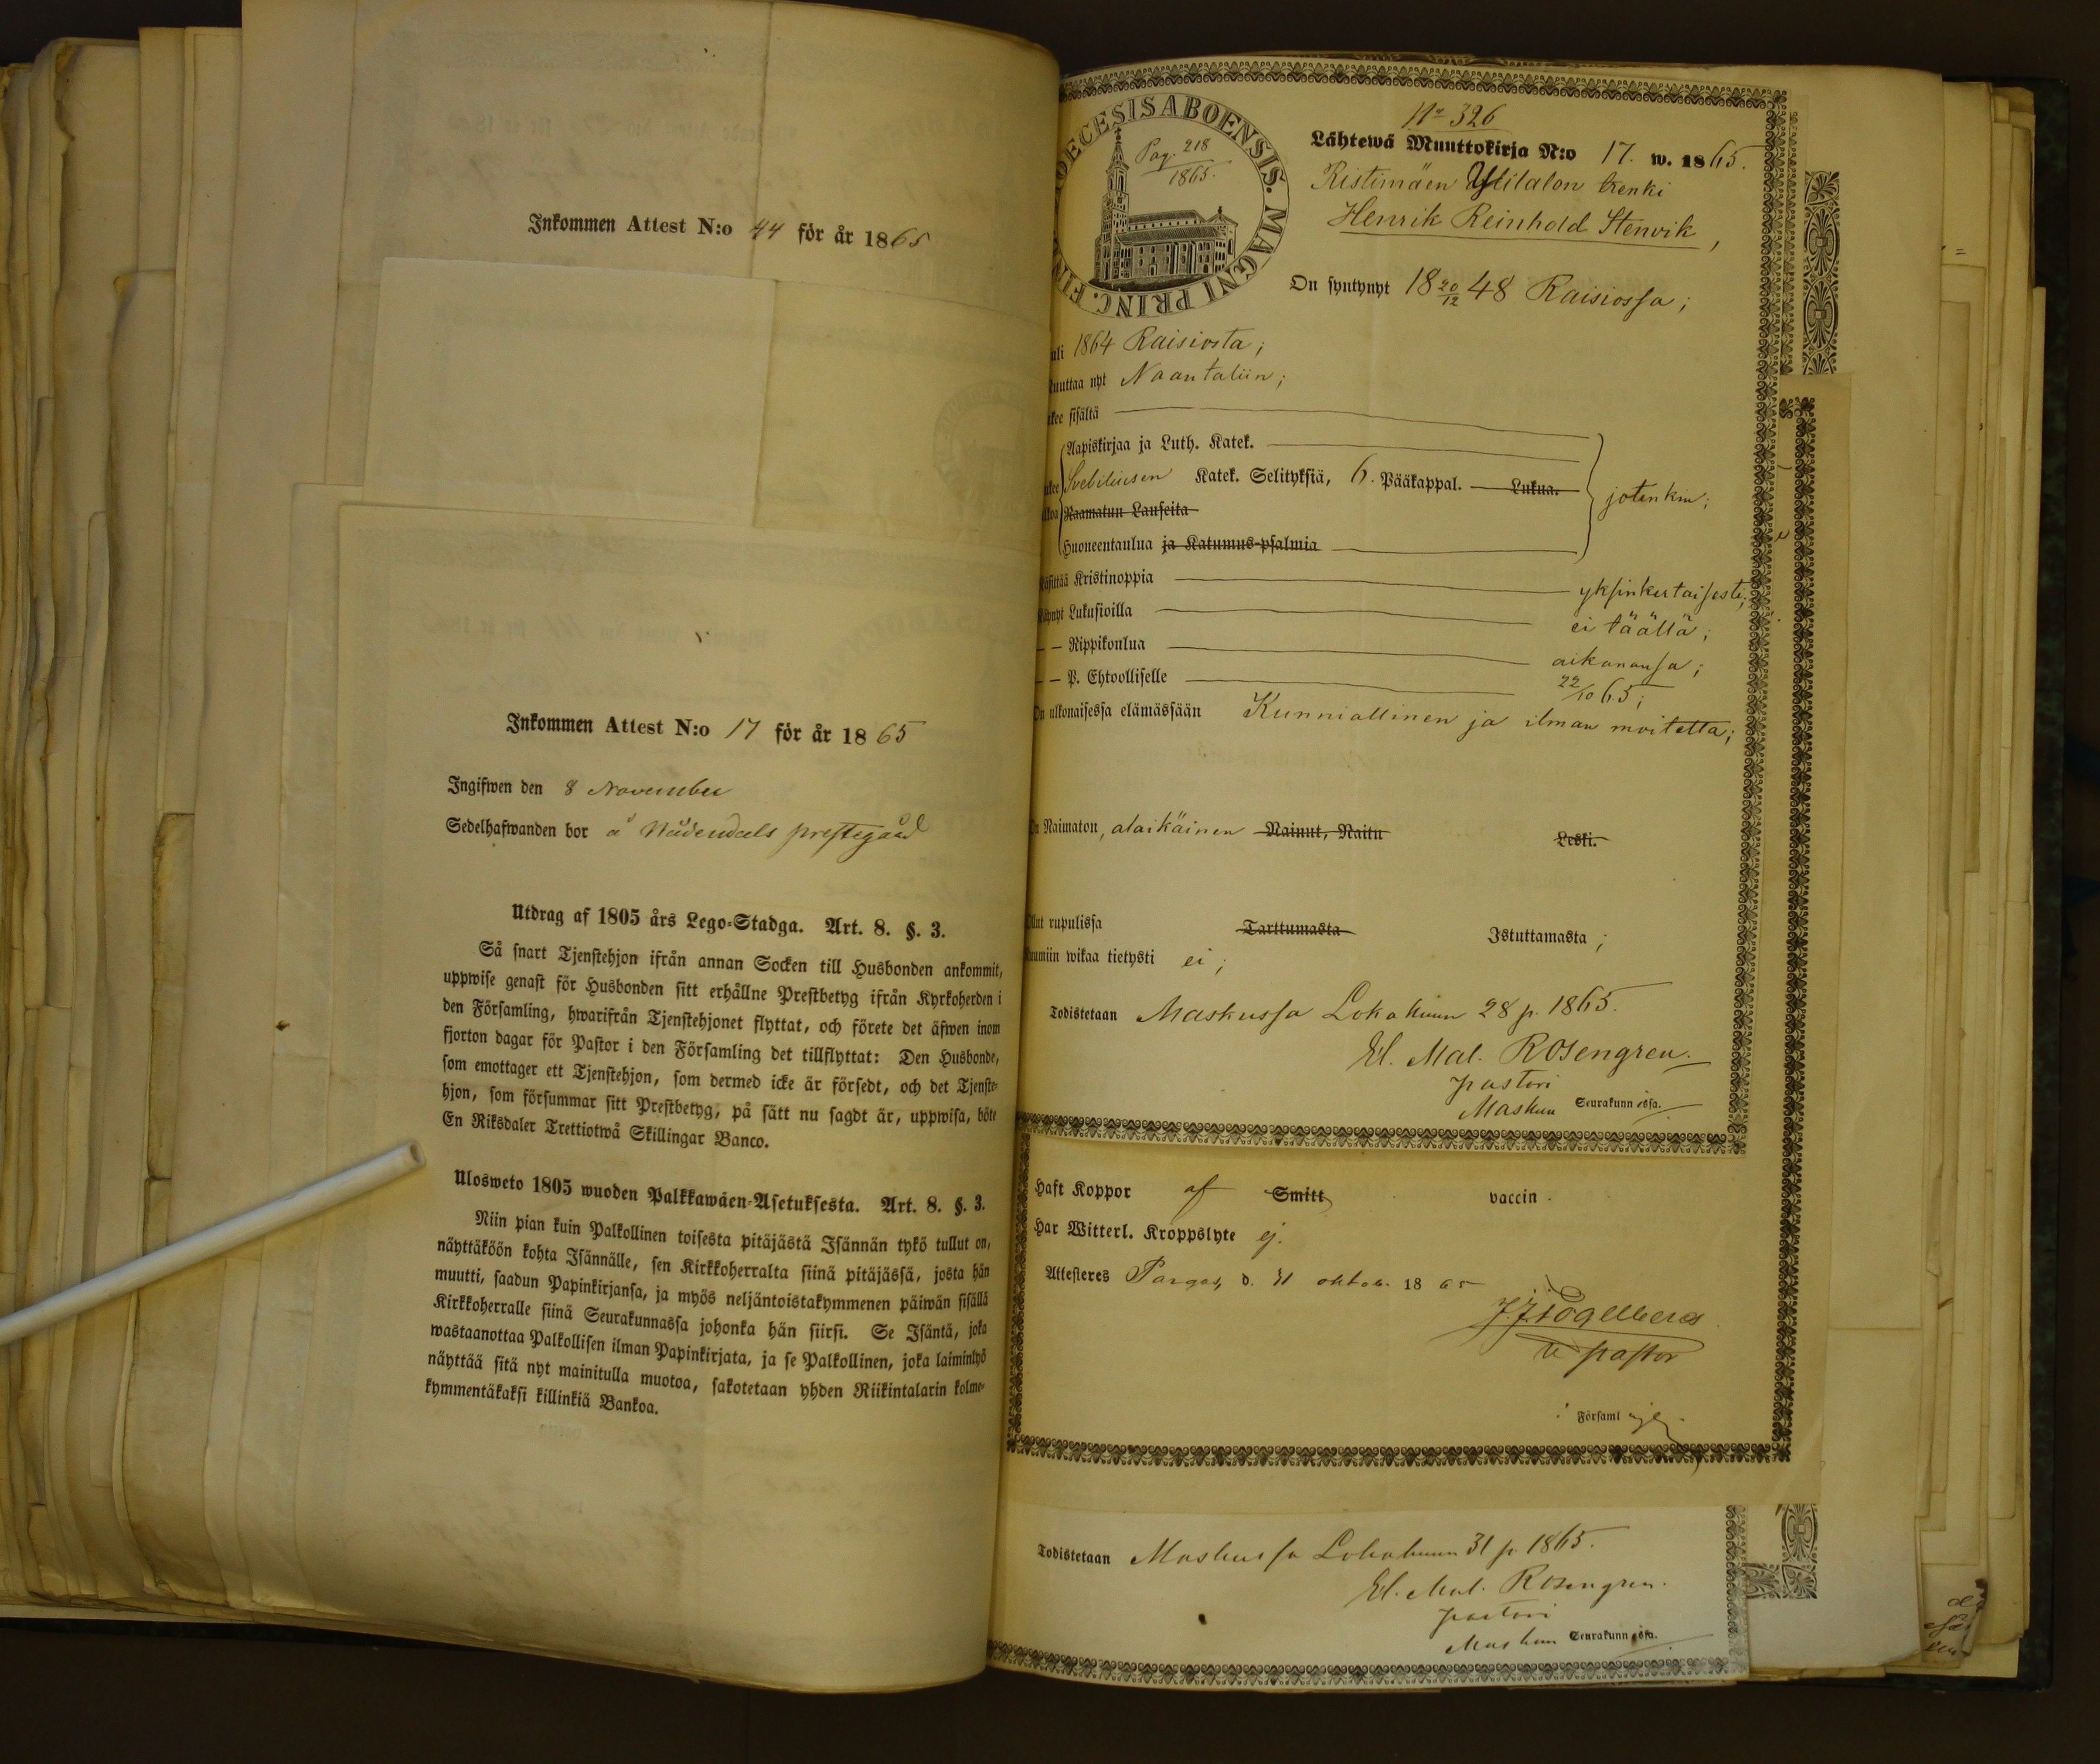 Inkommen Attest N:o 44 för år 1865
Inkommen Attest N:o 17 för år 1865
Ingifwen den 8 November
Sedelhafwanden bor å Nådendals prestegård
Utdrag af 1805 års Lego-Stadga. Art. 8. §. 3.
Så snart Tjenstehjon ifrån annan Socken till Husbonden ankommit,
uppwise genast för Husbonden sitt erhållne Prestbetyg ifrån Kyrkoherden i
den Församling, hwarifrån Tjenstehjonet flyttat, och förete det äfwen inom
fjorton dagar för Pastor i den Församling det tillflyttat: Den Husbonde,
som emottager ett Tjenstehjon, som dermed icke är försedt, och det Tjenste-
hjon, som försummar sitt Prestbetyg, på sätt nu sagdt är, uppwisa, böte
En Riksdaler Trettiotwå Skillingar Banco.
Ulosweto 1805 wuoden Palkkawäen-Asetuksesta. Art. 8. §. 3.
Niin pian kuin Palkollinen toisesta pitäjästä Isännän tykö tullut on,
näyttäköön kohta Isännälle, sen Kirkkoherralta siinä pitäjässä, josta hän
muutti, saadun Papinkirjansa, ja myös neljäntoistakymmenen päiwän sisällä
Kirkkoherralle siinä Seurakunnassa johonka hän siirsi. Se Isäntä, joka
wastaanottaa Palkollisen ilman Papinkirjata, ja se Palkollinen, joka laiminlyö
näyttää sitä nyt mainitulla muotoa, sakotetaan yhden Riikintalarin kolme-
kymmentäkaksi killinkiä Bankoa.
OECESIS ABOENSIS. MAGNI PRINC. FIN
Pag. 218
1865.
No 326
Lähtewä Muuttokirja N:o 17. w. 1865.
Ristimäen Ylitalon trenki
Henrik Reinhold Stenvik,
On syntynyt 18 20/12 48 Raisiossa;
uli 1864 Raisiosta;
uuttaa nyt Naantaliin;
ukee sisältä
Aapiskirjaa ja Luth. Katek.
ukee Svebiliusen Katek. Selityksiä, 6. Pääkappal. Lukua. jotenkin;
lkoa Raamatun Lauseita
Huoneentaulua ja Katumus-psalmia
äsittää Kristinoppia yksinkertaisesti;
äynyt Lukusioilla ei täällä;
— — Rippikoulua aikanansa;
— — P. Ehtoolliselle 22/10 65;
On ulkonaisessa elämässään Kunniallinen ja ilman moitetta;
On Naimaton, alaikäinen Nainut, Naitu Leski.
Ollut rupulissa Tarttumasta Istuttamasta;
uumiin wikaa tietysti ei;
Todistetaan Maskussa Lokakuun 28 p. 1865.
El. Mal. Rosengren.
pastori
Maskun Seurakunn essa.
Haft Koppor af Smitt vaccin.
Har Witterl. Kroppslyte ej.
Attesteres Pargas, d. 31 oktob. 1865
v pastor
i Församl
Todistetaan Maskussa Lokakuun 31 p. 1865.
El. Mal. Rosengren.
pastori
Maskun Seurakunn essa.